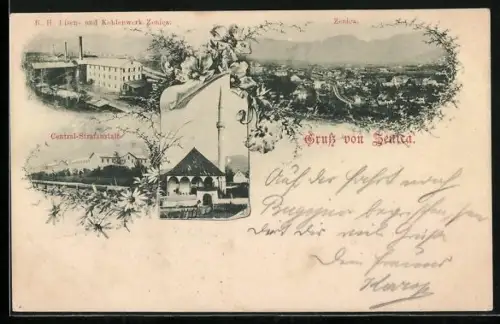 B. H. Eisen- und Kohlenwerk Zenica.
Zenica.
Central-Strafanstalt.
Gruß von Zenica.
Auf der Fahrt nach
Bugojno
Dir viele Grüße
Dein